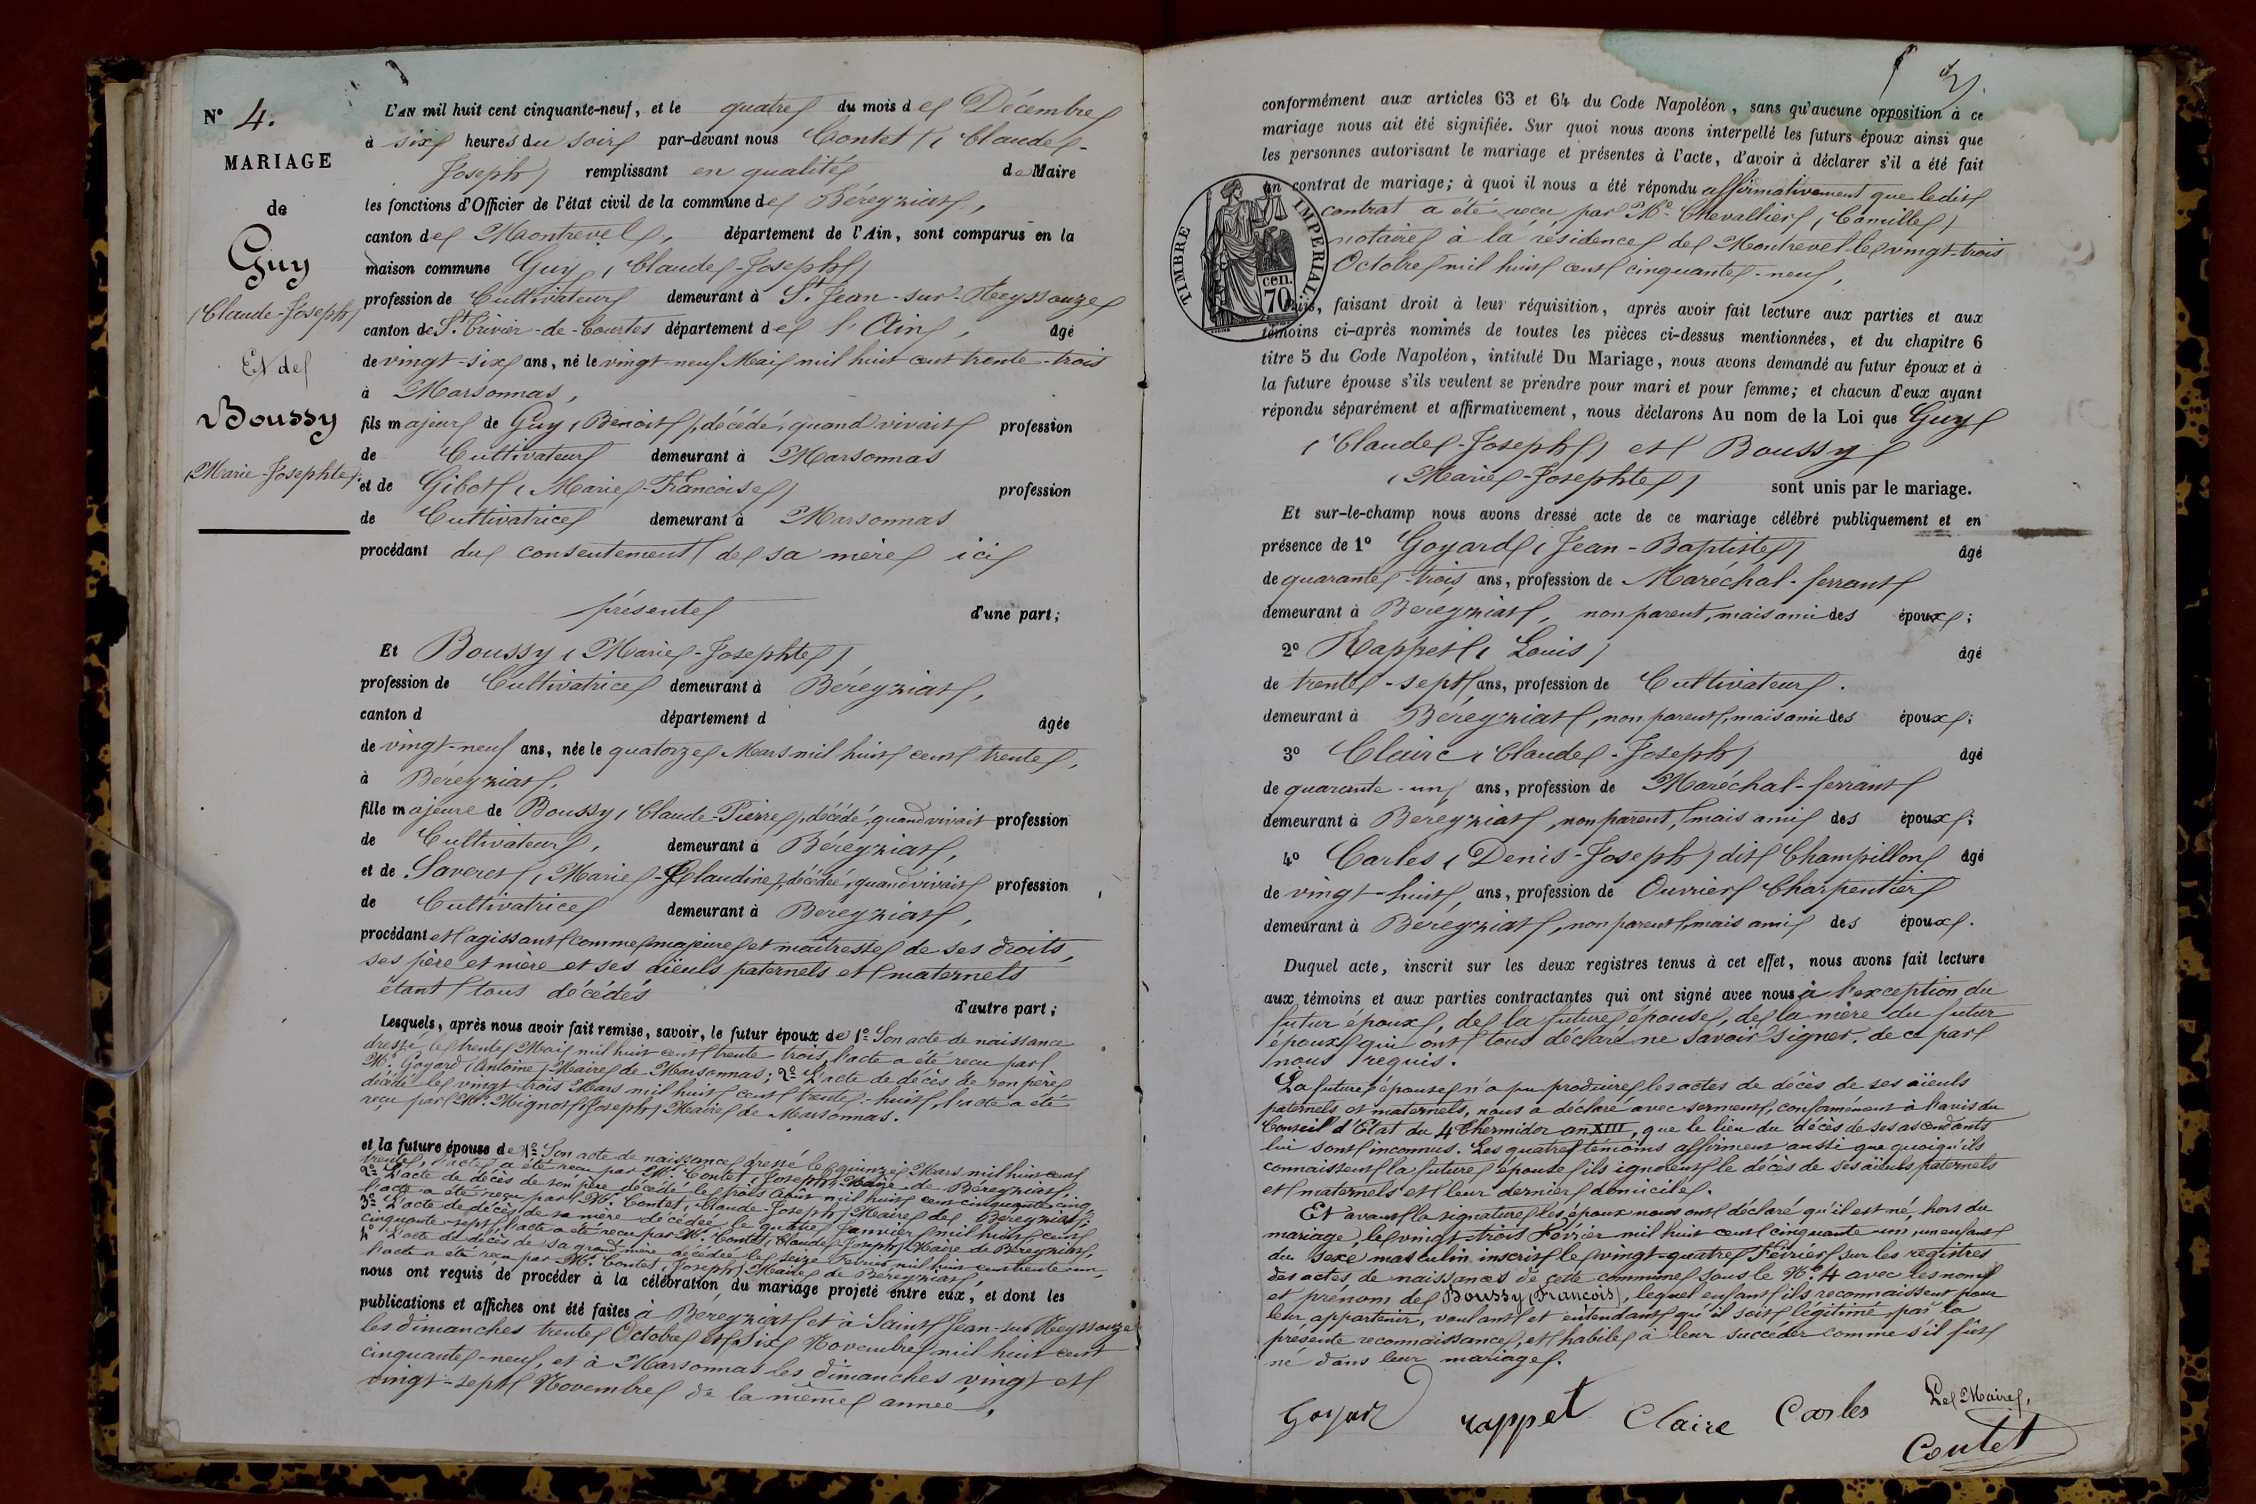 N° 4.
MARIAGE
de
Guy
(Claude-Joseph)
Et de
Boussy
(Marie-Josephte).
L'AN mil huit cent cinquante-neuf, et le quatre du mois de Décembre
à six heures du soir par-devant nous Contet (Claude-
Joseph) remplissant en qualité de Maire
les fonctions d'Officier de l'état civil de la commune de Béréyziat,
canton de Montrevel, département de l'Ain, sont comparus en la
maison commune Guy (Claude-Joseph)
profession de Cultivateur demeurant à St. Jean-sur-Reyssouze
canton de St. Trivier-de-Courtes département de l'Ain, âgé
de vingt-six ans, né le vingt-neuf Mai mil huit cent trente-trois
à Marsonnas,
fils majeur de Guy (Benoit), décédé, quand vivait profession
de Cultivateur demeurant à Marsonnas
et de Gibot (Marie-Françoise) profession
de Cultivatrice demeurant à Marsonnas
procédant du consentement de sa mère ici
présente d'une part;
Et Boussy (Marie-Josephte)
profession de Cultivatrice demeurant à Béréyziat,
canton d département d âgée
de vingt-neuf ans, née le quatorze Mars mil huit cent trente,
à Béréyziat,
fille majeure de Boussy (Claude-Pierre), décédé, quand vivait profession
de Cultivateur, demeurant à Béréyziat,
et de Saveret (Marie-Claudine), décédée, quand vivait profession
de Cultivatrice demeurant à Bereyziat,
procédant et agissant comme majeure et maîtresse de ses droits,
ses père et mère et ses aïeuls paternels et maternels
étant tous décédés d'autre part;
Lesquels, après nous avoir fait remise, savoir, le futur époux de 1° Son acte de naissance
dressé le trente Mai mil huit cent trente trois, l'acte a été reçu par
Mr. Goyard (Antoine) Maire de Marsonnas; 2° L'acte de décès de son père
décédé le vingt trois Mars mil huit cent trente-huit, l'acte a été
reçu par Mr. Mignot (Joseph) Maire de Marsonnas.
et la future épouse de 1° Son acte de naissance dressé le quinze Mars mil huit cent
trente, l'acte a été reçu par Mr. Contet (Joseph) Maire de Béréyziat,
2° L'acte de décès de son père décédé le trois Août mil huit cent cinquante cinq,
l'acte a été reçu par Mr. Contet (Claude-Joseph) Maire de Bereyziat;
3° L'acte de décès de sa mère décédée le quatre Janvier mil huit cent
cinquante-sept, l'acte a été reçu par Mr. Contet (Claude-Joseph) Maire de Béréyziat,
4° L'acte de décès de sa grand'mère décédée le seize Février mil huit cent trente un,
l'acte a été reçu par Mr. Contet (Joseph) Maire de Béréyziat,
nous ont requis de procéder à la célébration du mariage projeté entre eux, et dont les
publications et affiches ont été faites à Béréyziat et à Saint Jean-sur Reyssouze
les dimanches trente Octobre et Six Novembre mil huit cent
cinquante-neuf, et à Marsonnas les dimanches vingt et
vingt-sept Novembre de la même année,
conformément aux articles 63 et 64 du Code Napoléon, sans qu'aucune opposition à ce
mariage nous ait été signifiée. Sur quoi nous avons interpellé les futurs époux ainsi que
les personnes autorisant le mariage et présentes à l'acte, d'avoir à déclarer s'il a été fait
un contrat de mariage; à quoi il nous a été répondu affirmativement que ledit
contrat a été reçu par Me. Chevallier (Camille)
notaire à la résidence de Montrevel le vingt-trois
Octobre mil huit cent cinquante-neuf,
TIMBRE IMPÉRIAL
70 cen.
faisant droit à leur réquisition, après avoir fait lecture aux parties et aux
témoins ci-après nommés de toutes les pièces ci-dessus mentionnées, et du chapitre 6
titre 5 du Code Napoléon, intitulé Du Mariage, nous avons demandé au futur époux et à
la future épouse s'ils veulent se prendre pour mari et pour femme; et chacun d'eux ayant
répondu séparément et affirmativement, nous déclarons Au nom de la Loi que Guy
(Claude-Joseph) et Boussy
(Marie-Josephte) sont unis par le mariage.
Et sur-le-champ nous avons dressé acte de ce mariage célébré publiquement et en
présence de 1° Goyard (Jean-Baptiste) âgé
de quarante-trois ans, profession de Maréchal-ferrant
demeurant à Bereyziat, non parent, mais ami des époux;
2° Rappet (Louis) âgé
de trente-sept ans, profession de Cultivateur.
demeurant à Béréyziat, non parent, mais ami des époux;
3° Claire (Claude-Joseph) âgé
de quarante-un ans, profession de Maréchal-ferrant
demeurant à Bereyziat, non parent, mais ami des époux;
4° Carles (Denis-Joseph) dit Champillon âgé
de vingt-huit, ans, profession de Ouvrier Charpentier
demeurant à Béreyziat, non parent, mais ami des époux.
Duquel acte, inscrit sur les deux registres tenus à cet effet, nous avons fait lecture
aux témoins et aux parties contractantes qui ont signé avec nous à l'exception du
futur époux, de la future épouse, de la mère du futur
époux qui ont tous déclaré ne savoir signer, de ce par
nous requis.
La future épouse n'a pu produire les actes de décès de ses aïeuls
paternels et maternels, nous a déclaré avec serment, conformément à l'avis du
Conseil d'État du 4 Thermidor an XIII, que le lieu du décès de ses ascendants
lui sont inconnus. Les quatre témoins affirment aussi que quoiqu'ils
connaissent la future épouse ils ignorent le décès de ses aïeuls paternels
et maternels et leur dernier domicile.
Et avant la signature les époux nous ont déclaré qu'il est né, hors du
mariage, le vingt-trois Février mil huit cent cinquante un, un enfant
du sexe masculin inscrit le vingt-quatre Février sur les registres
des actes de naissances de cette commune sous le N°. 4 avec les nom
et prénom de Boussy (François), lequel enfant ils reconnaissent pour
leur appartenir, voulant et entendant qu'il soit légitimé par la
présente reconnaissance, et habile à leur succéder comme s'il fût
né dans leur mariage.
Goyard rappet Claire Carles Le Maire,
Contet